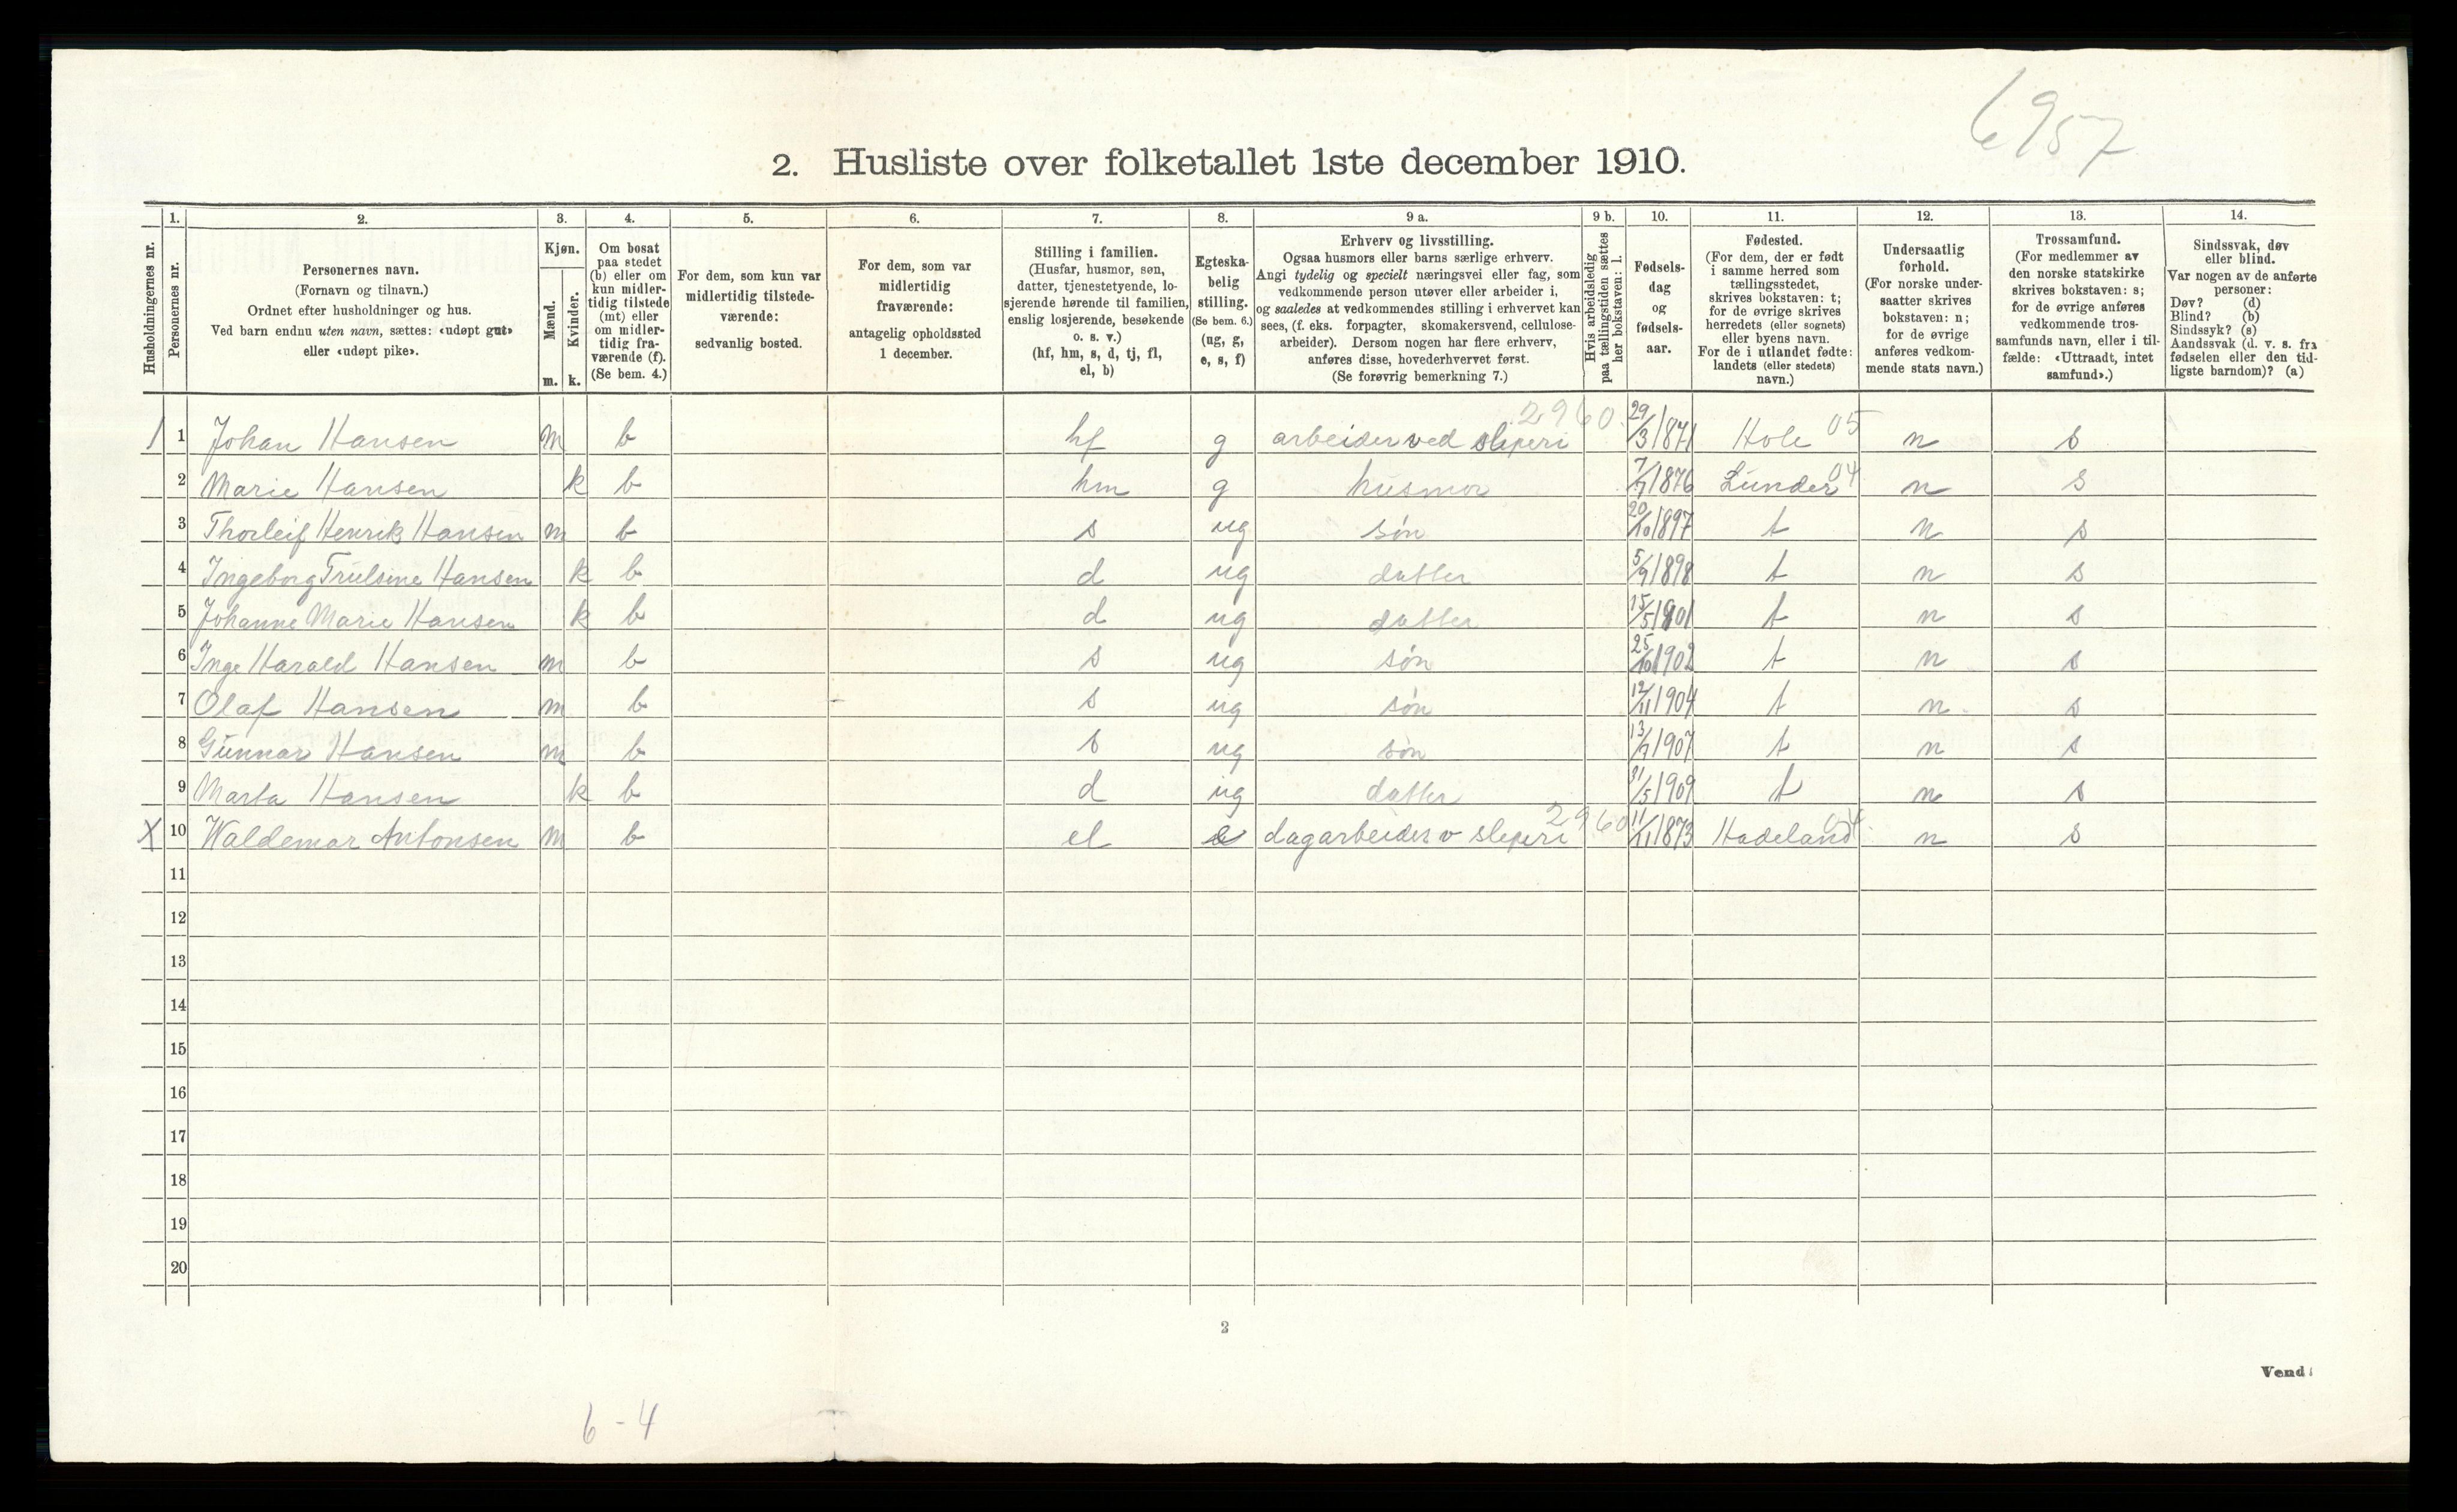 6957
2. Husliste over folketallet 1ste december 1910.
Husholdningernes nr.
1. Personernes nr.
2. Personernes navn. (Fornavn og tilnavn.) Ordnet efter husholdninger og hus. Ved barn endnu uten navn, sættes: «udøpt gut» eller «udøpt pike».
3. Kjøn. Mænd. m. Kvinder. k.
4. Om bosat paa stedet (b) eller om kun midlertidig tilstede (mt) eller om midlertidig fraværende (f). (Se bem. 4.)
5. For dem, som kun var midlertidig tilstedeværende: sedvanlig bosted.
6. For dem, som var midlertidig fraværende: antagelig opholdssted 1 december.
7. Stilling i familien. (Husfar, husmor, søn, datter, tjenestetyende, losjerende hørende til familien, enslig losjerende, besøkende o. s. v.) (hf, hm, s, d, tj, fl, el, b)
8. Egteskabelig stilling. (Se bem. 6.) (ug, g, e, s, f)
9 a. Erhverv og livsstilling. Ogsaa husmors eller barns særlige erhverv. Angi tydelig og specielt næringsvei eller fag, som vedkommende person utøver eller arbeider i, og saaledes at vedkommendes stilling i erhvervet kan sees, (f. eks. forpagter, skomakersvend, cellulosearbeider). Dersom nogen har flere erhverv, anføres disse, hovederhvervet først. (Se forøvrig bemerkning 7.)
9 b. Hvis arbeidsledig paa tællingstiden sættes her bokstaven: l.
10. Fødselsdag og fødselsaar.
11. Fødested. (For dem, der er født i samme herred som tællingsstedet, skrives bokstaven: t; for de øvrige skrives herredets (eller sognets) eller byens navn. For de i utlandet fødte: landets (eller stedets) navn.)
12. Undersaatlig forhold. (For norske undersaatter skrives bokstaven: n; for de øvrige anføres vedkommende stats navn.)
13. Trossamfund. (For medlemmer av den norske statskirke skrives bokstaven: s; for de øvrige anføres vedkommende trossamfunds navn, eller i tilfælde: «Uttraadt, intet samfund».)
14. Sindssvak, døv eller blind. Var nogen av de anførte personer: Døv? (d) Blind? (b) Sindssyk? (s) Aandssvak (d. v. s. fra fødselen eller den tidligste barndom)? (a)
1 1 Johan Hansen m b hf g arbeider ved sliperi 2960 29/3 1871 Hole 05 n s
2 Marie Hansen k b hm g husmor 1876 Lunder 04 n s
3 Thorleif Henrik Hansen m b s ug søn 20/10 1897 t n s
4 Ingeborg Trulsine Hansen k b d ug datter 5/9 1898 t n s
5 Johanne Marie Hansen k b d ug datter 15/5 1901 t n s
6 Inge Harald Hansen m b s ug søn 25/10 1902 t n s
7 Olaf Hansen m b s ug søn 12/11 1904 t n s
8 Gunnar Hansen m b s ug søn 1907 t n s
9 Marta Hansen k b d ug datter 31/5 1909 t n s
X 10 Waldemar Antonsen m b el dagarbeider v sliperi 2960 11/11 1873 Hadeland 04 n s
11
12
13
14
15
16
17
18
19
20
3
Vend!
6-4